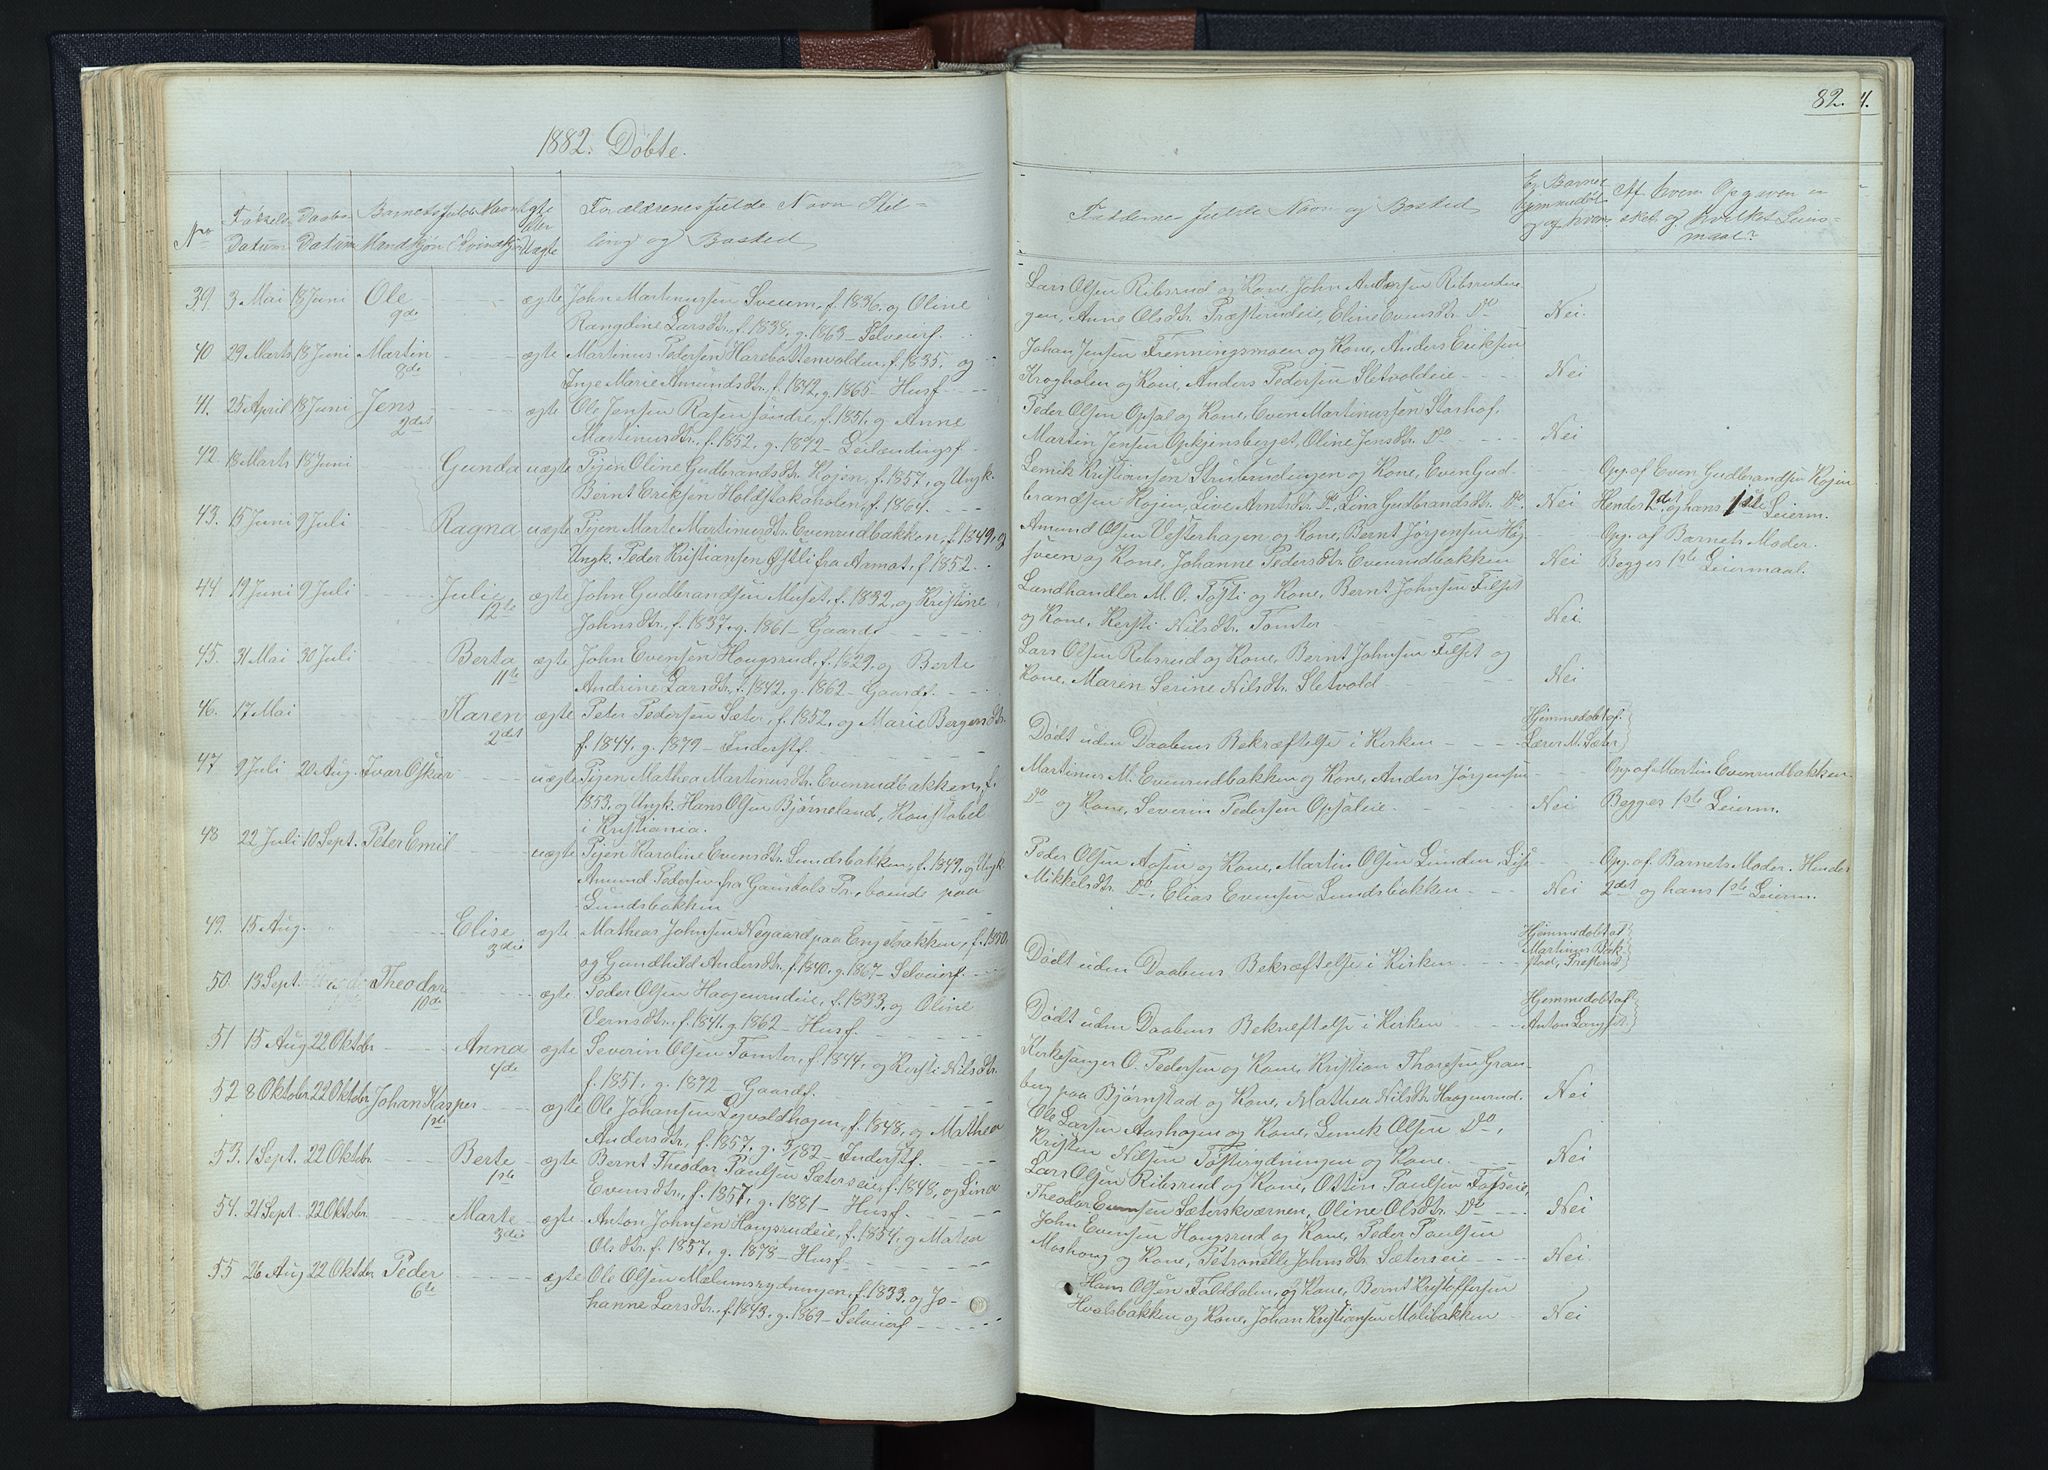 82. 4.
1882. Døbte.
No
Fødsels Datum
Daabs Datum
Barnets fulde Navn
Mandkjøn Kvindkjøn
Ægte eller Uægte
Forældrenes fulde Navn Stilling og Bosted
Faddernes fulde Navn og Bosted
Er Barnet hjemmedøbt og af hvem
Af hvem Opgaven er skeet og hvilket Leiermaal?
39. 3 Mai 18 Juni Ole 9de ægte John Martinussen Sveum, f. 1836, og Oline
Rangdine Larsdtr, f. 1838, g. 1863 - Selveierf.
40 29 Marts 18 Juni Martin 8de ægte Martinus Pedersen Harebottenvolden, f. 1835, og
Inge Marie Amundsdtr, f. 1842, g. 1865 - Husf.
41. 25 April 18 Juni Jens 2det ægte Ole Jensen Rasen søndre, f. 1851, g Anne
Martinusdtr, f. 1852, g. 1872 - Leilændingsf.
42. 18 Marts 18 Juni Gunda uægte Pigen Oline Gudbrandsdtr Kojen, f. 1857, og Ungk.
Bernt Eriksen Holdstakaholen, f. 1864.
43. 15 Juni 9 Juli Ragna uægte Pigen Marte Martinusdtr. Evenrudbakken, f. 1849, og
Ungk. Peder Kristiansen Østli fra Aamot, f. 1852.
44 19 Juni 9 Juli Julie 12te ægte John Gudbrandsen Muset, f. 1832, og Kristine
Johnsdtr, f. 1837, g. 1861 - Gaardf.
45. 31 Mai 30 Juli Berta 11te ægte John Evensen Hougsrud, f. 1829, og Berte
Andrine Larsdtr, f. 1842, g. 1862 - Gaardf.
46. 17 Mai Karen 2det ægte Peter Pedersen Sæter, f. 1852, og Marie Bergersdtr.
f. 1844, g. 1879 - Inderstf.
47 9 Juli 20 Aug. Ivar Oskar uægte Pigen Mathea Martinusdtr. Evenrudbakken, f.
1853, og Ungk. Hans Olsen Bjørneland, Konstabel
i Kristiania.
48 22 Juli 10 Sept. Peter Emil uægte Pigen Karoline Evensdtr. Lundsbakken, f. 1849, og Ungk
Amund Pedersen fra Gausdals Pr., boende paa
Lundsbakken
49. 15 Aug. Elise 3die ægte Matheas Johnsen Negaard paa Engebakken, f. 1840.
og Gundhild Andersdtr, f. 1840, g. 1867 - Selveierf.
50 13 Sept. Theodor 10de ægte Peder Olsen Haagenrudeie, f. 1833, og Oline
Vernsdtr, f. 1841, g. 1862 - Husf.
51 15 Aug 22 Oktbr. Anna 4de ægte Severin Olsen Tomter, f. 1844, og Kersti Nilsdtr.
f. 1851, g. 1872 - Gaardf.
52 8 Oktober 22 Oktober Johan Kasper 1ste ægte Ole Johansen Løgvoldhagen, f. 1848, og Mathea
Andersdtr, f. 1857, g. 5/182 - Inderstf.
53. 1 Sept. 22 Oktbr. Berte 1ste ægte Bernt Theodor Paulsen Sæterseie, f. 1848, og Lina
Evensdtr, f. 1857, g. 1881 - Husf.
54. 21 Sept. 22 Oktbr. Marte 3die ægte Anton Johnsen Hougsrudeie, f. 1854, g Matea
Olsdtr. f. 1857, g. 1878 - Husf.
55 26 Aug 22 Oktbr Peder 6te ægte Ole Olsen Mælumsrydningen, f. 1833, og Jo-
hanne Larsdtr, f. 1843, g. 1869 - Selveierf
Lars Olsen Ribsrud og Kone, John Andersen Ribsrudeie
gen, Anne Olsdtr. Præsterudeie, Eline Evensdtr. Do Nei.
Johan Jensen Frenningsmoen og Kone, Anders Eriksen
Krogholen og Kone, Anders Pedersen Sletvoldeie Nei
Peder Olsen Opsal og Kone, Even Martinussen Storhof,
Martin Jensen Opkjønsberget, Oline Jensdtr. Do Nei
Lemik Kristiansen Strubrudingen og Kone, Even Gud- Opg. af Even Gudbrandsen Kojen
brandsen Kojen, Live Arntsdtr. Do, Lina Gudbrandsdtr. Do Nei Hendes 2det, og hans 1ste Leierm.
Amund Olsen Vesterhagen og Kone, Bernt Jørgensen Høg Opg. af Barnets Moder.
sveen og Kone, Johanne Pedersdtr. Evenrudbakken Nei Begges 1ste Leiermaal.
Landhandler M. O. Tosti og Kone, Bernt Johnsen Filset
og Kone, Kersti Nilsdtr. Tomter Nei.
Lars Olsen Ribsrud og Kone, Bernt Johnsen Filset og
Kone, Maren Serine Nilsdtr. Sletvold Nei
Hjemmedøbt af
Dødt uden Daabens Bekræftelse i Kirken Lærer M. Sæter
Martinus M. Evenrudbakken og Kone, Anders Jørgensen Opg. af Martin Evenrudbakken.
Do og Kone, Severin Pedersen Opsaleie Nei Begges 1ste Leierm.
Peder Olsen Aasen og Kone, Martin Olsen Lunden, Lise Opg. af Barnets Moder. Hendes
Mikkelsdtr. Do, Elias Evensen Lundsbakken Nei 2det og hans 1ste Leierm.
Hjemmedøbt af
Martinus Bak
Dødt uden Daabens Bekræftelse i Kirken stad, Præsterud
Hjemmedøbt af
Dødt uden Daabens Bekræftelse i Kirken Anton Langset
Kirkesanger O. Pedersen og Kone, Kristian Thoresen Gran-
berg paa Bjørnstad og Kone, Mathea Nilsdtr. Haagenrud. Nei
Ole Larsen Aashagen og Kone, Lemek Olsen Do,
Kristen Nilsen Tostirydningen og Kone. Nei
Lars Olsen Ribsrud og Kone, Ostin Paulsen Fosseie,
Theodor Evensen Sæterskværnen, Oline Olsdtr. Do Nei
John Evensen Hougsrud og Kone, Peder Paulsen
Moshoug og Kone, Petronelle Johnsdtr. Sæterseie Nei
Hans Olsen Falddalen, og Kone, Bernt Kristoffersen
Hvalsbakken og Kone, Johan Kristiansen Molibakken Nei